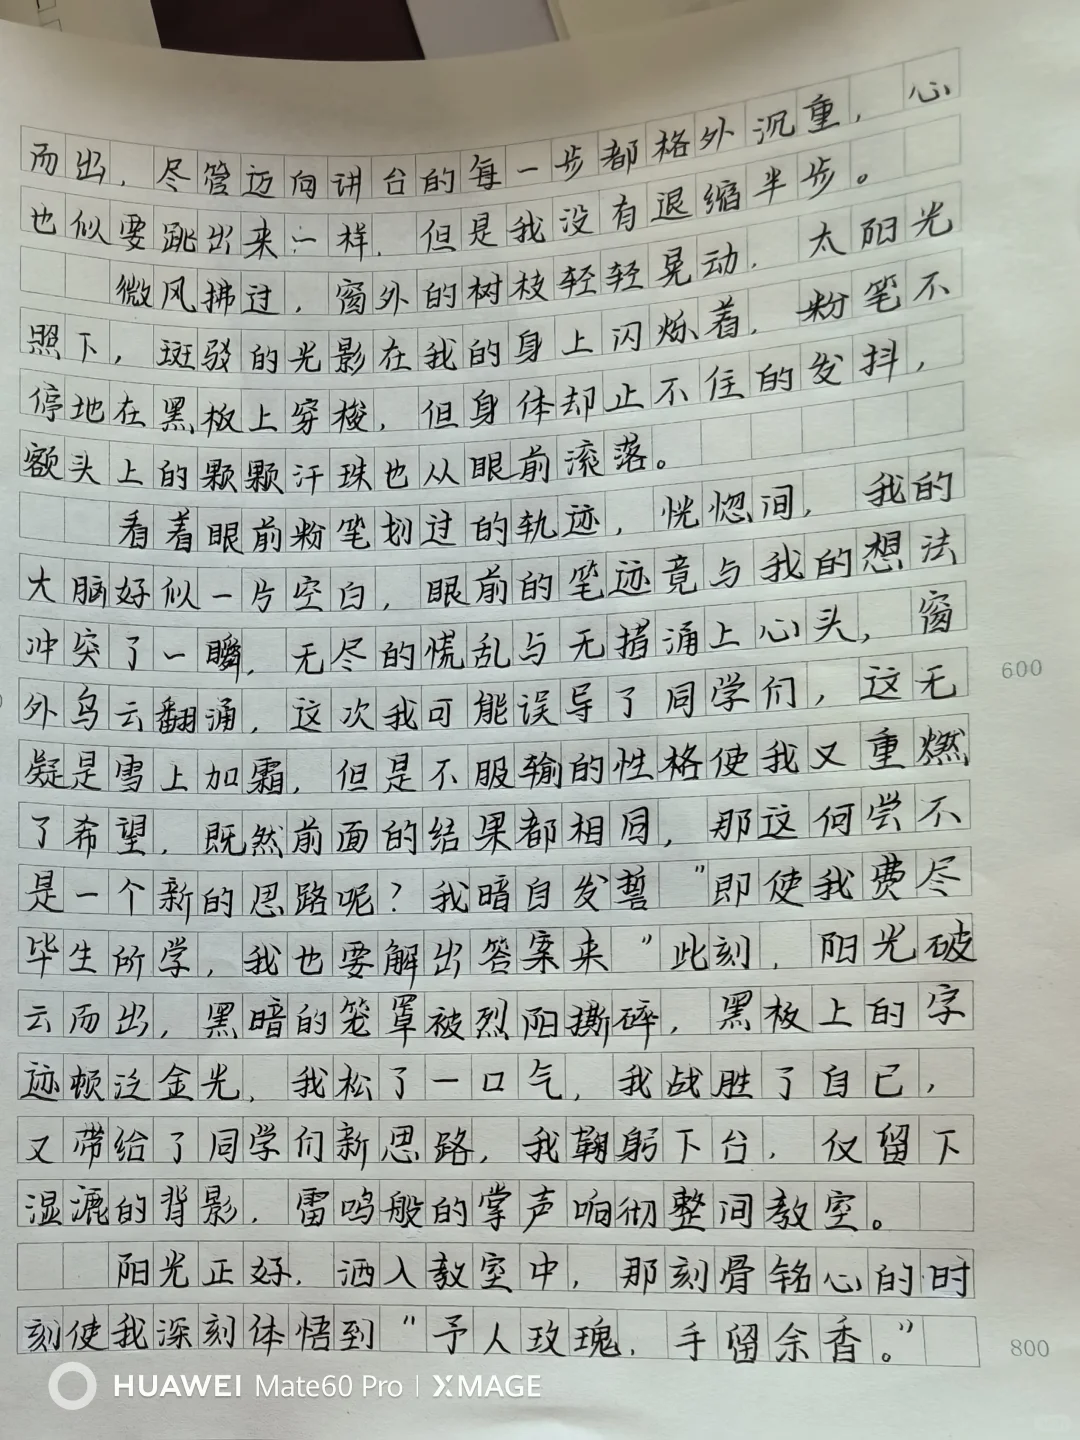 而出，尽管迈向讲台的每一步都格外沉重，心
也似要跳出来一样，但是我没有退缩半步。
微风拂过，窗外的树枝轻轻晃动，太阳光
照下，斑驳的光影在我的身上闪烁着，粉笔不
停地在黑板上穿梭，但身体却止不住的发抖，
额头上的颗颗汗珠也从眼前滚落。
看着眼前粉笔划过的轨迹，恍惚间，我的
大脑好似一片空白，眼前的笔迹竟与我的想法
冲突了一瞬，无尽的慌乱与无措涌上心头，窗
外乌云翻涌，这次我可能误导了同学们，这无
疑是雪上加霜，但是不服输的性格使我又重燃
了希望，既然前面的结果都相同，那这何尝不
是一个新的思路呢？我暗自发誓"即使我费尽
毕生所学，我也要解出答案来"此刻，阳光破
云而出，黑暗的笼罩被烈阳撕碎，黑板上的字
迹顿泛金光，我松了一口气，我战胜了自己，
又带给了同学们新思路，我鞠躬下台，仅留下
湿漉的背影，雷鸣般的掌声响彻整间教室。
阳光正好，洒入教室中，那刻骨铭心的时
刻使我深刻体悟到"予人玫瑰，手留余香。"
600
800
HUAWEI Mate60 Pro | XMAGE